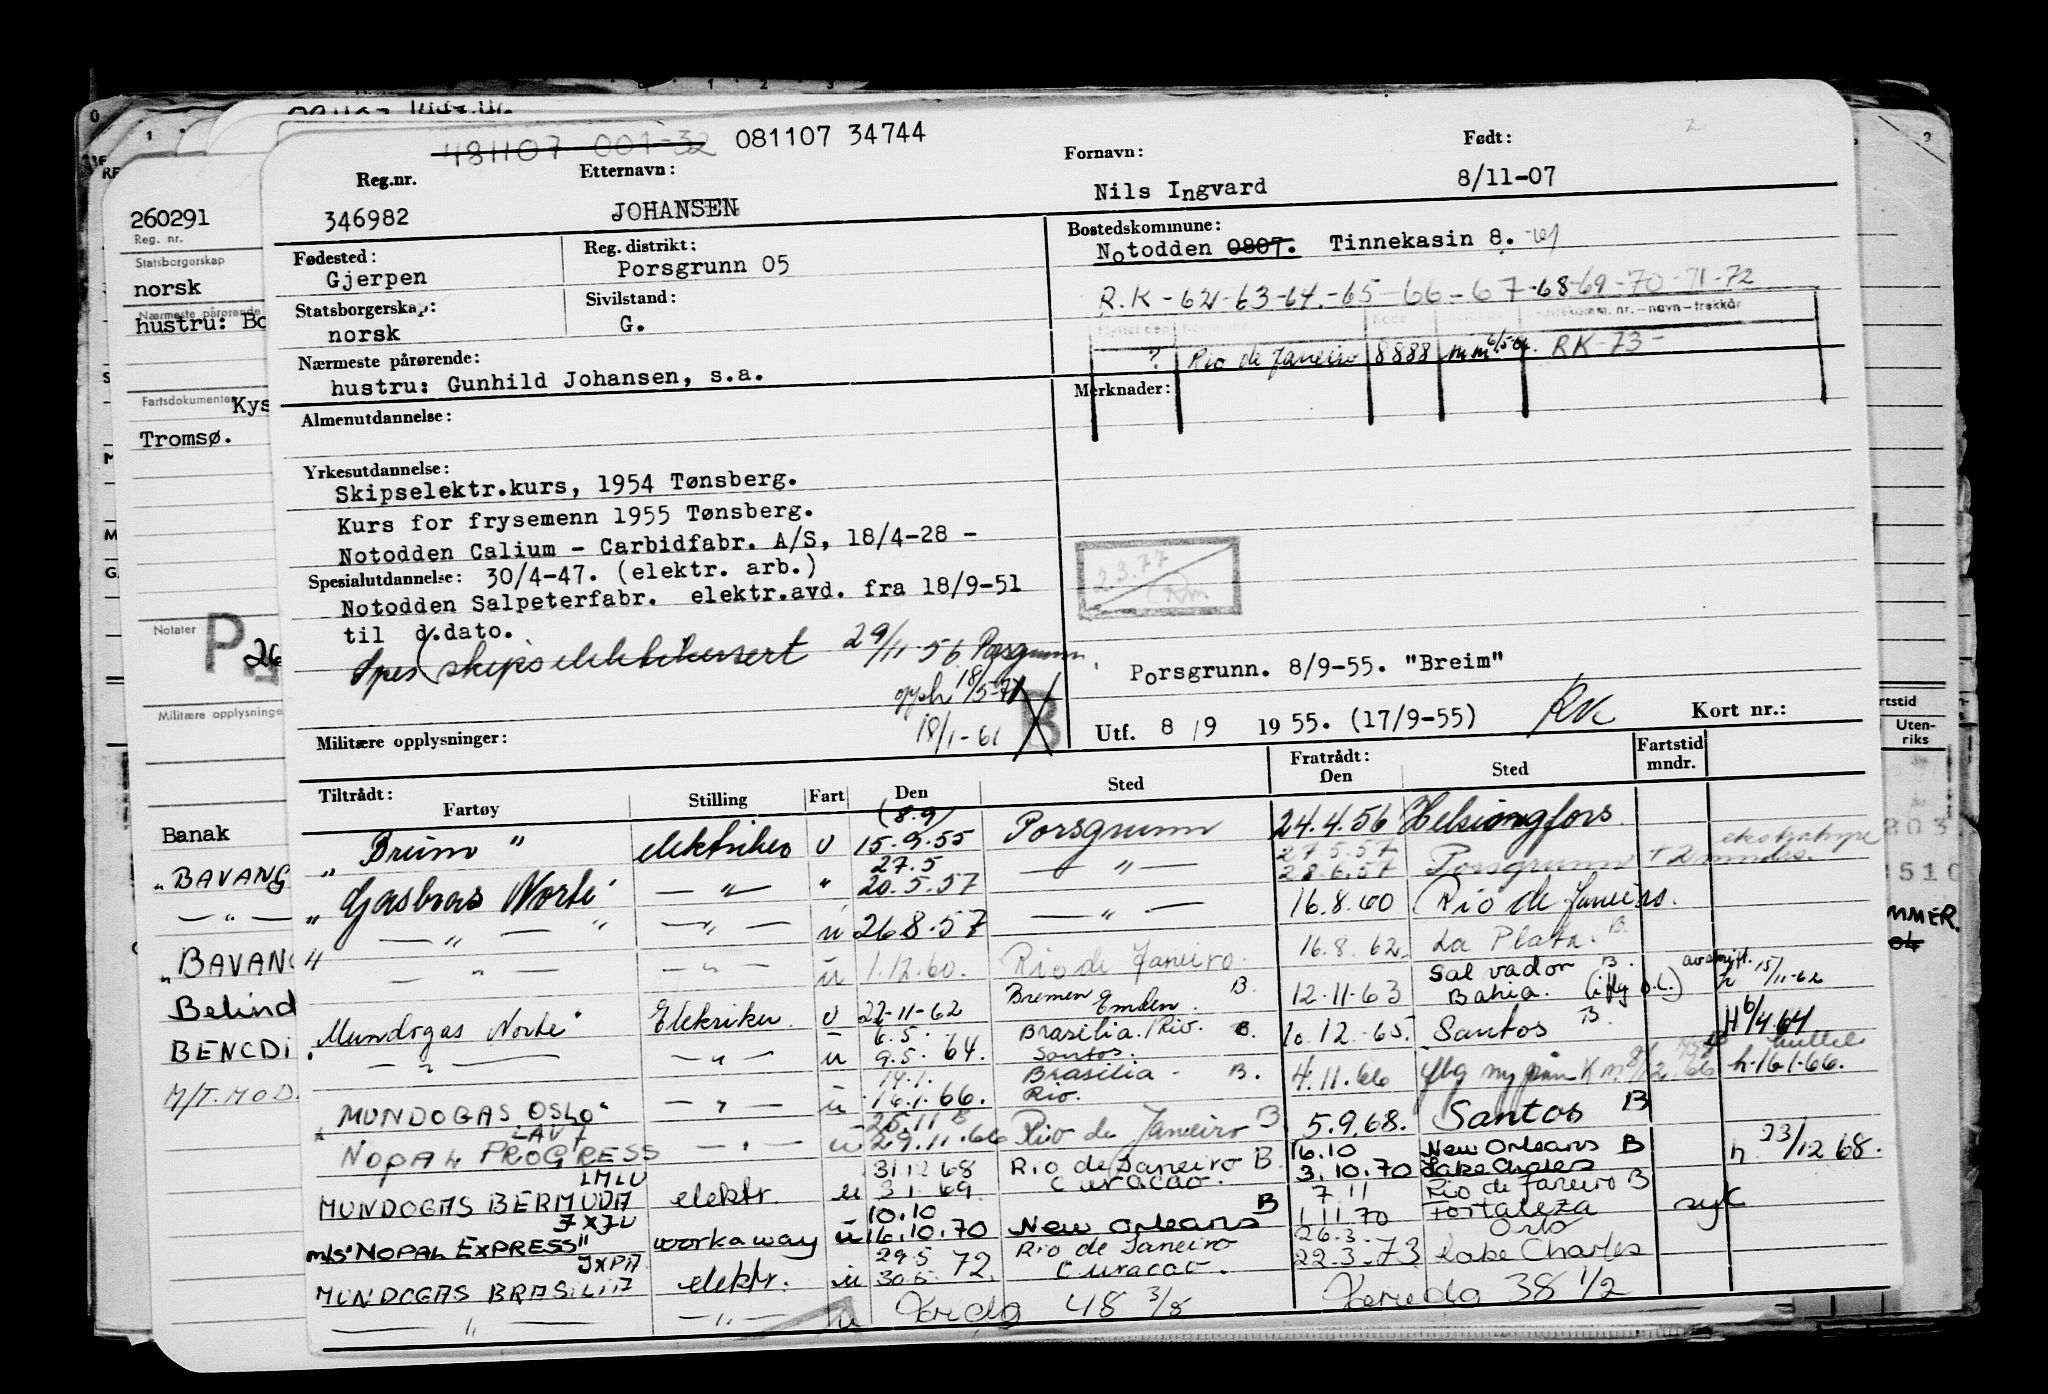 481107 001-32 081107 34744
Reg.nr. Etternavn: Fornavn: Født:
346982 JOHANSEN Nils Ingvard 8/11-07
Fødested: Reg. distrikt: Bostedskommune:
Gjerpen Porsgrunn 05 Notodden 0807. Tinnekasin 8.
Statsborgerskap: Sivilstand:
norsk G.
R.K - 62-63-64-65-66-67-68-69-70-71-72
? Rio de Janeiro 8888 RK-73-
Nærmeste pårørende:
hustru: Gunhild Johansen, s.a.
Almenutdannelse: Merknader:
Yrkesutdannelse:
Skipselektr.kurs, 1954 Tønsberg.
Kurs for frysemenn 1955 Tønsberg.
Notodden Calium - Carbidfabr. A/S, 18/4-28 -
Spesialutdannelse: 30/4-47. (elektr. arb.)
Notodden Salpeterfabr. elektr.avd. fra 18/9-51
til d.dato.
29/11-56 Porsgrunn
18/1-61 B
2.3.77
Porsgrunn. 8/9-55. "Breim"
Utf. 8/9 1955. (17/9-55) RK Kort nr.:
Militære opplysninger:
Tiltrådt: Fratrådt: Fartstid
Fartøy Stilling Fart Den Sted Den Sted mndr.
"Breim" elektriker u (8.9) 15.9.55 Porsgrunn 24.4.56 Helsingfors
"Gasbras Norte" — " — " 27.5 20.5.57 — " — 27.5.57 28.6.57 Porsgrunn + 2 mndrs.
" — " — " — " — u 26.8.57 — " — 16.8.60 Rio de Janeiro.
" — " — — " — u 1.12.60. Rio de Janeiro. 16.8.62. La Plata. B.
"Mundogas Norte" Elekriker u 22-11-62 Bremen Emden. B. 12-11-63 Salvador B. Bahia. 15/11-62
— " — — " — u 6.5. 9.5.64. Brasilia. / Rio. B. Santos. 10.12.65. Santos B. H 6/4 64
"MUNDOGAS OSLO" — " — u 14.1. 16.1.66. Brasilia - B. Rio. 4.11.66 h.16.1.66.
LAVJ
NOPAL PROGRESS — " — u 25.11 29.11.66 Rio de Janeiro B 5.9.68. Santos B
LMLU
MUNDOGAS BERMUDA elektr. u 31.12 68 3.1.69 Rio de Janeiro B. Curacao. 16.10 3.10.70 New Orleans B Lake Charles h 23/12 68.
JXJU
m/s "NOPAL EXPRESS" workaway u 10.10 16.10.70 New Orleans B 7.11 1.11.70 Rio de Janeiro B Fortaleza syk
JXPA
MUNDOGAS BRASILIA elektr. u 29.5 30.5. 72. Rio de Janeiro Curacao. 26.3. 22.3.73 Oslo Lake Charles
— " — — " — u 48 3/8 38 1/2
260291
Reg. nr.
Statsborgerskap
norsk
Nærmeste pårørende
hustru: Bo
Fartsdokumenter Kys
Tromsø.
Notater
P
26
Militære opplysninger
Banak
"BAVANG
— " —
"BAVANG
Belind
BENCDI
M/T. MOD
Uten-
riks